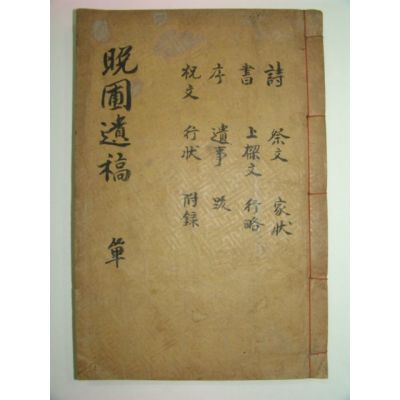 詩 祭文 家狀
書 上樑文 行略
序 遺事 跋
祝文 行狀 附錄
晩圃遺稿 單